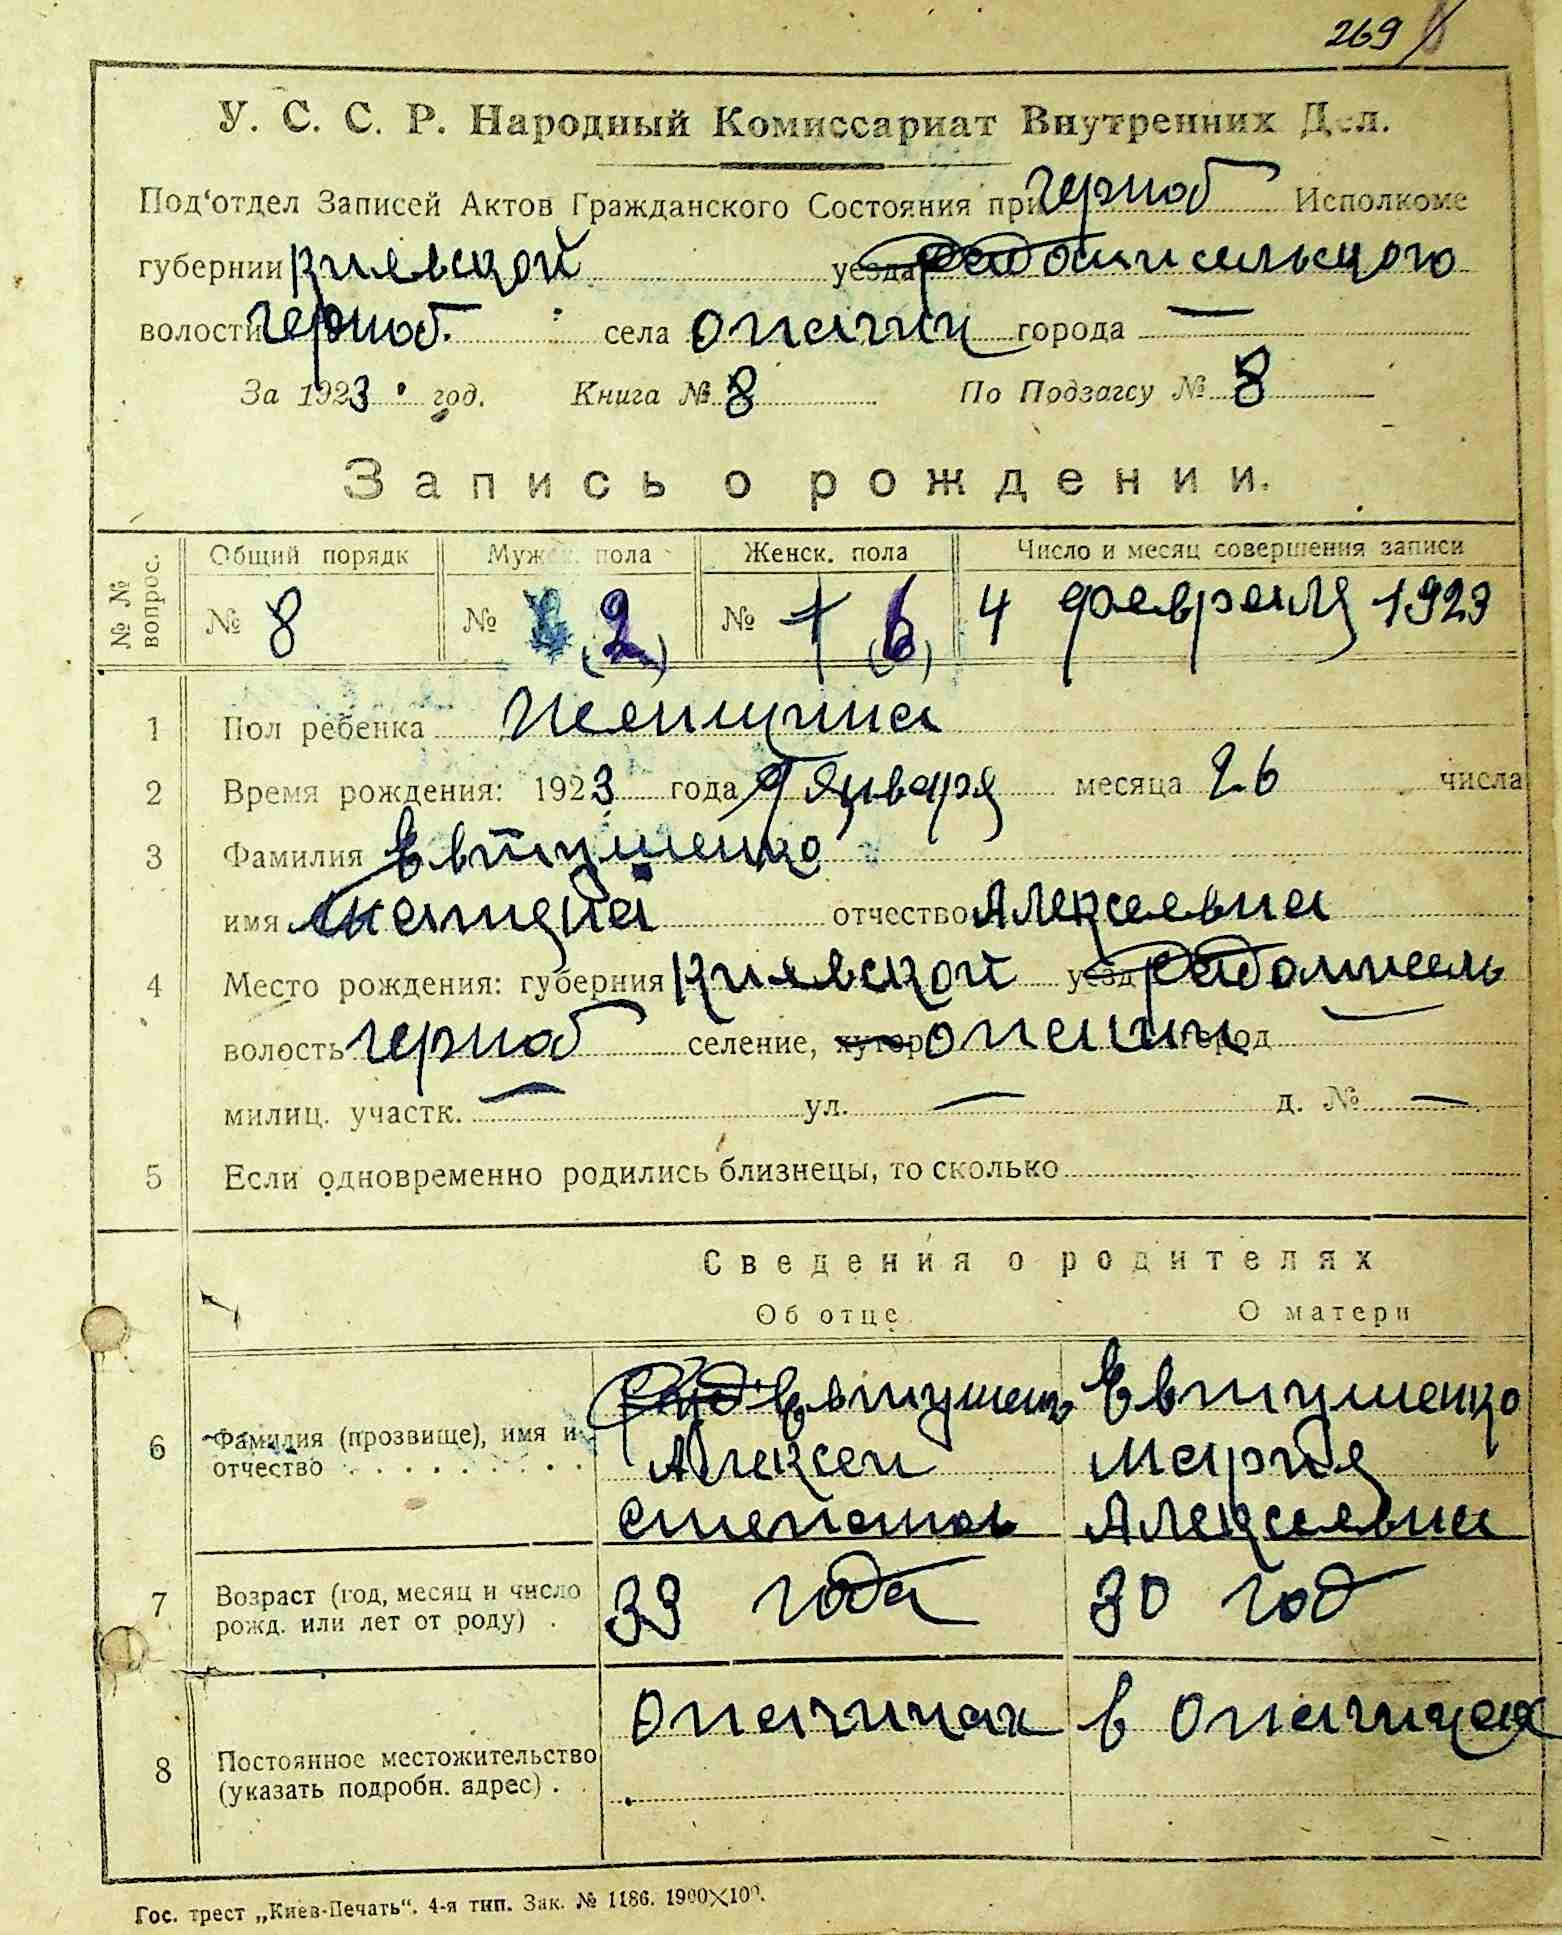 269
У. С. С. Р. Народный Комиссариат Внутренних Дел.
Под‘отдел Записей Актов Гражданского Состояния при Черноб Исполкоме
губернии Киевской уезда Радомисельского
волости Черноб. села Опачич города —
За 1923 год. Книга № 8 По Подзагсу № 8
Запись о рождении.
№ № вопрос. Общий порядк Мужск. пола Женск. пола Число и месяц совершения записи
№ 8 № (2) № 1 (6) 4 февраля 1923
1 Пол ребенка Женщина
2 Время рождения: 1923 года января месяца 26 числа
3 Фамилия Евтушенко
имя отчество Алексеевна
4 Место рождения: губерния Киевской уезд Радомисель
волость Черноб селение, хутор город —
милиц. участк. — ул. — д. № —
5 Если одновременно родились близнецы, то сколько
Сведения о родителях
Об отце О матери
6 Фамилия (прозвище), имя и отчество Евтушенк Евтушенко
Алексей Мария
Степанов Алексеевна
7 Возраст (год, месяц и число рожд. или лет от роду) 33 года 30 год
8 Постоянное местожительство (указать подробн. адрес) Опачичах в Опачицах
Гос. трест „Киев-Печать“. 4-я тип. Зак. № 1186. 1900×100.